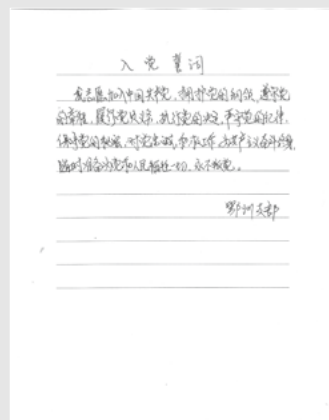 入党誓词
我志愿加入中国共产党，拥护党的纲领，遵守党
的章程，履行党员义务，执行党的决定，严守党的纪律，
保守党的秘密，对党忠诚，积极工作，为共产主义奋斗终身，
随时准备为党和人民牺牲一切，永不叛党。
鄂州支部